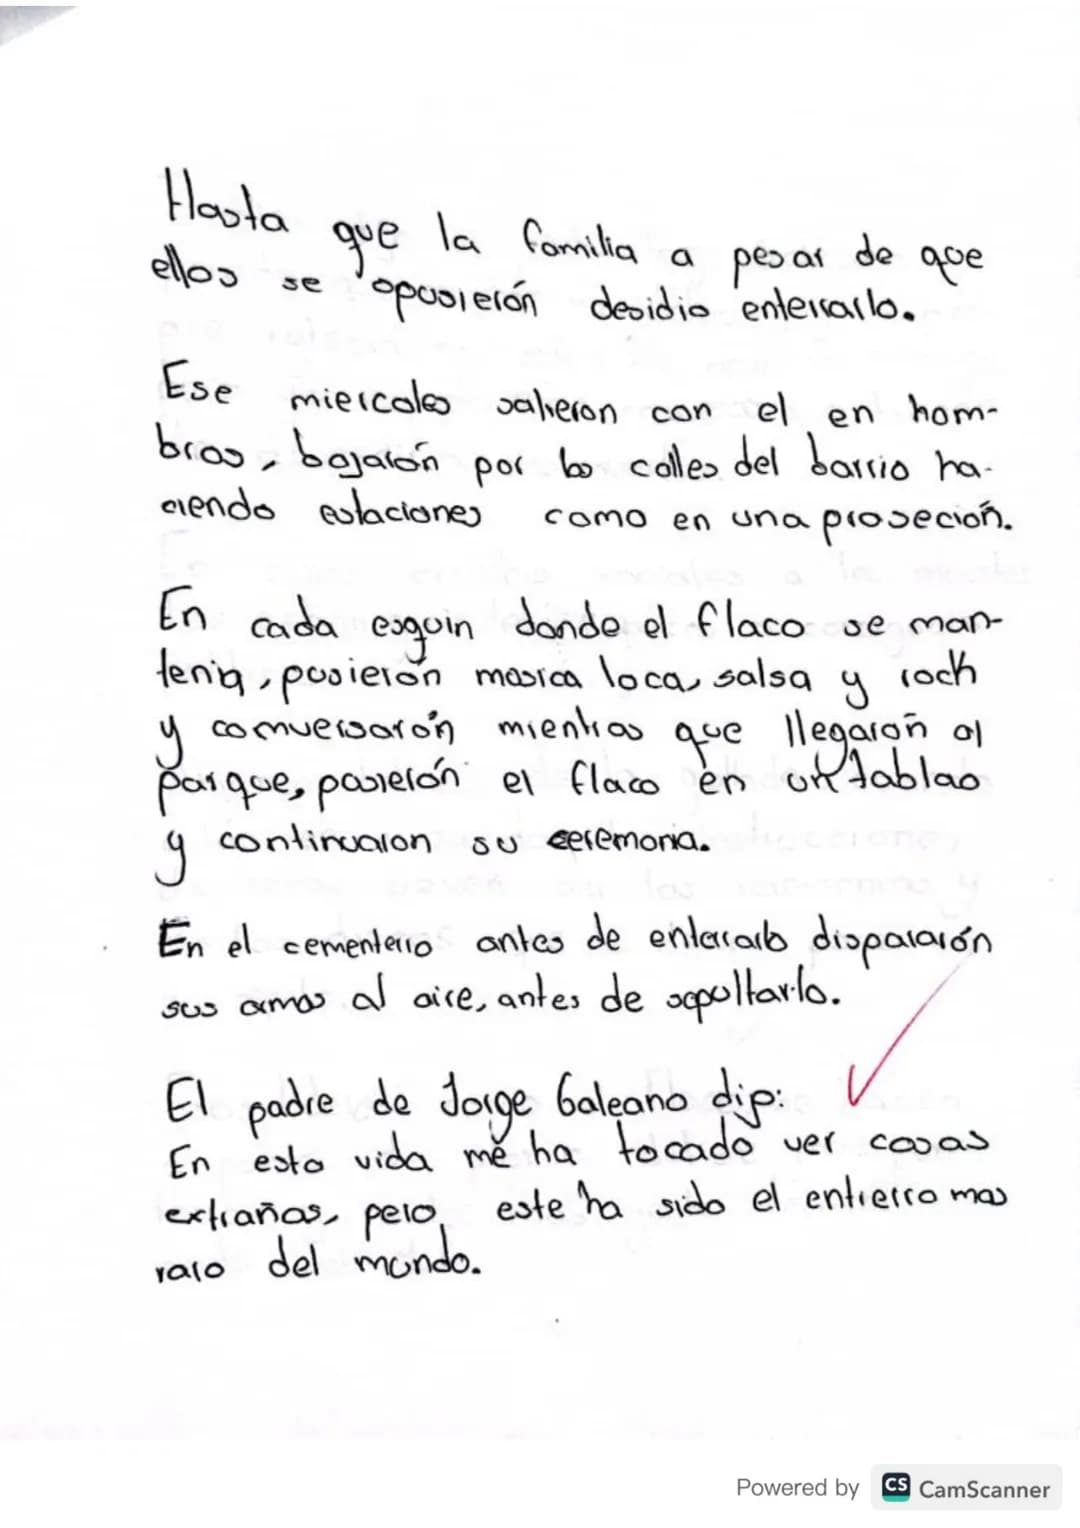 Hasta que la familia a pesar de que
ellos se oposierón desidio enterrarlo.
Ese miercoles salieron con el en hom-
bros, bajarón por los calles del barrio ha-
ciendo estaciones como en una proseción.
En cada esquin donde el flaco se man-
tenia, pusierón musica loca, salsa y rock
y comversarón mientras que llegarón al
parque, pusierón el flaco en un tablao
y continuaron su ceremonia.
En el cementerio antes de enterrarlo dispararón
sus armas al aire, antes de sepultarlo.
El padre de Jorge Galeano dijo:
En esta vida me ha tocado ver cosas
extrañas, pero, este ha sido el entierro mas
raro del mundo.
Powered by CS CamScanner